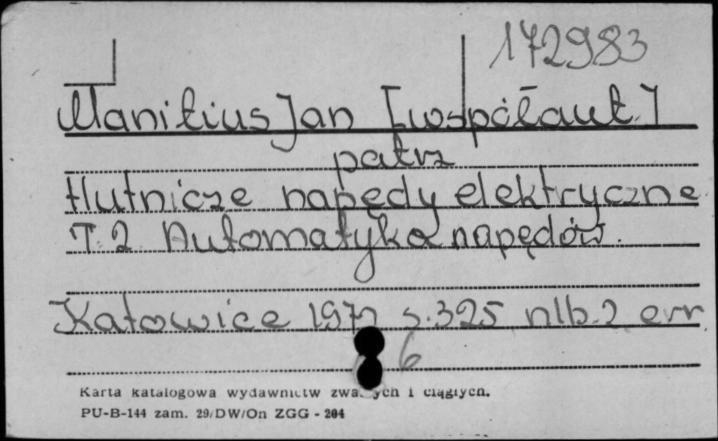 172983
Manitius Jan [współaut.]
patrz
Hutnicze napędy elektryczne.
T. 2 Automatyka napędów.
Katowice 1972 s. 325 nlb. 2 err.
6
Karta katalogowa wydawnictw i ciągłych.
PU-B-144 zam. 29/DW/On ZGG - 204